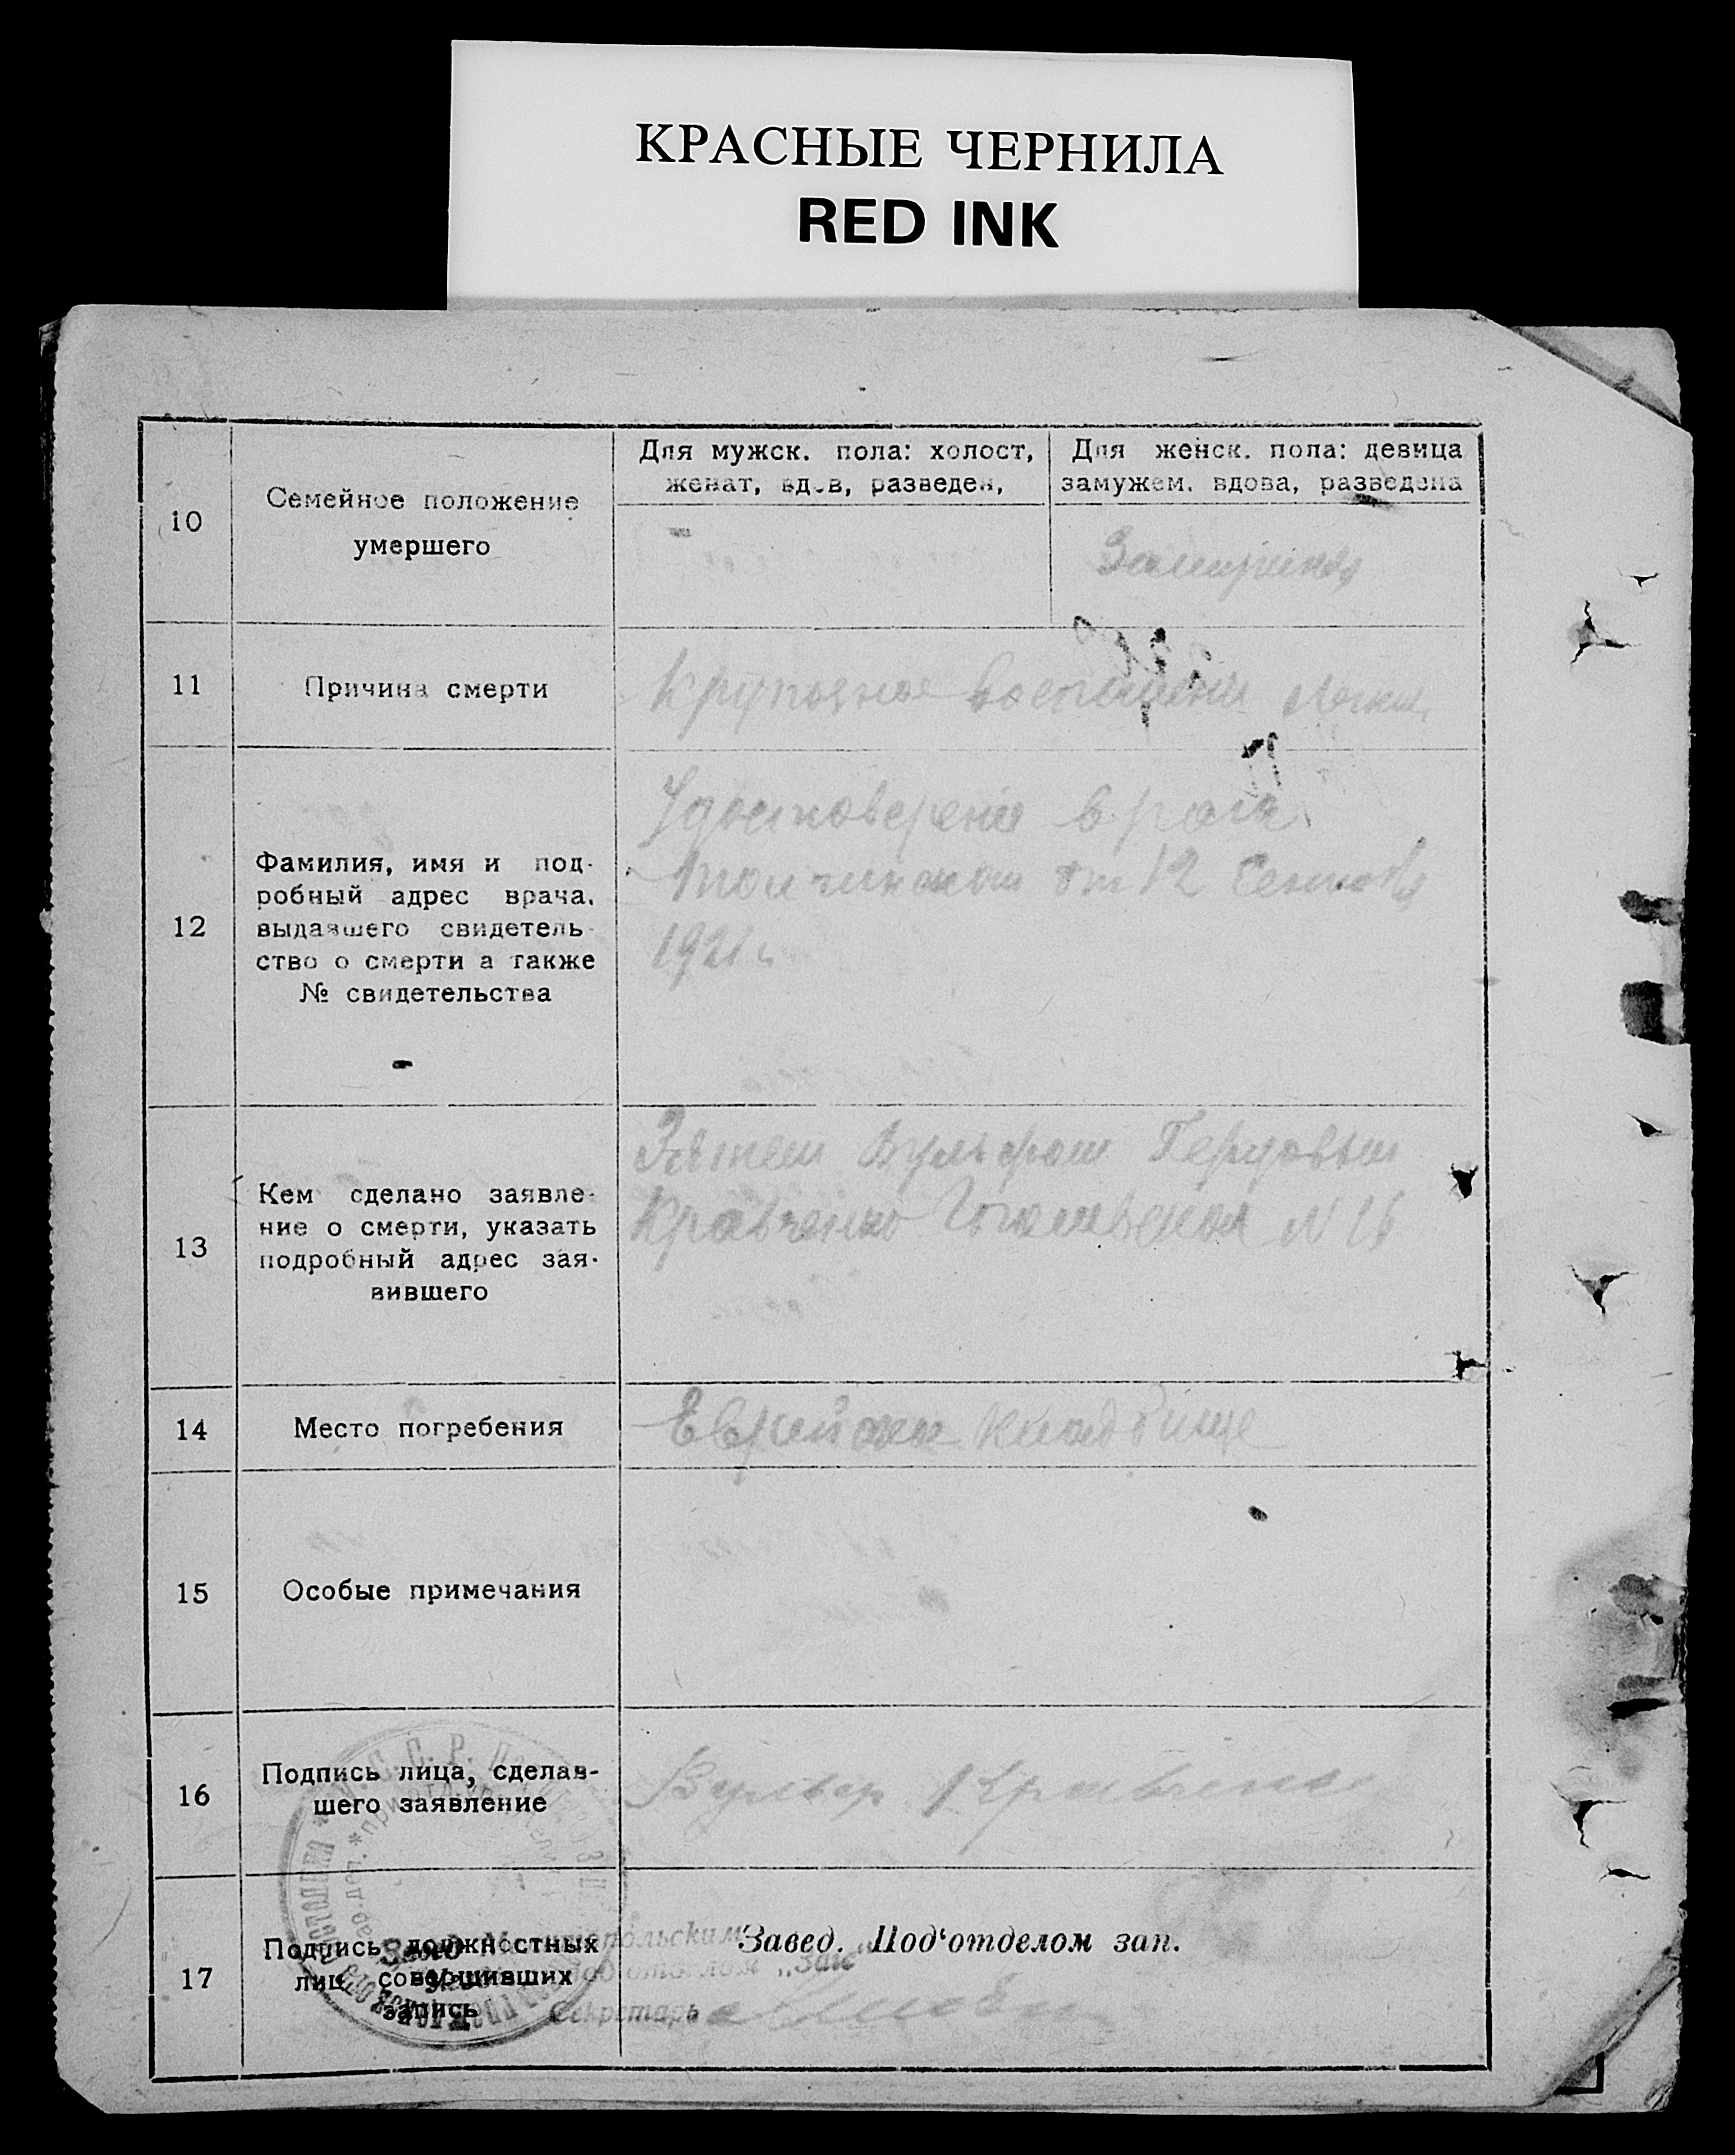 КРАСНЫЕ ЧЕРНИЛА
RED INK
10
Семейное положение
умершего
Для мужск. пола: холост,
женат, вдов, разведен,
Для женск. пола: девица
замужем, вдова, разведена
Замужняя
11
Причина смерти
Крупозное воспаление легких
12
Фамилия, имя и под-
робный адрес врача,
выдавшего свидетель-
ство о смерти а также
№ свидетельства
Удостоверение врача
от 12 Сентяб
1921 г.
13
Кем сделано заявле-
ние о смерти, указать
подробный адрес зая-
вившего
Зятем Вульфом Герцовым
Кравченко N 16
14
Место погребения
Еврейское кладбище
15
Особые примечания
16
Подпись лица, сделав-
шего заявление
Вульф Кравченко
17
Подпись должностных
лиц совершивших
запись
Завед. Под‘отделом зап.
Секретарь